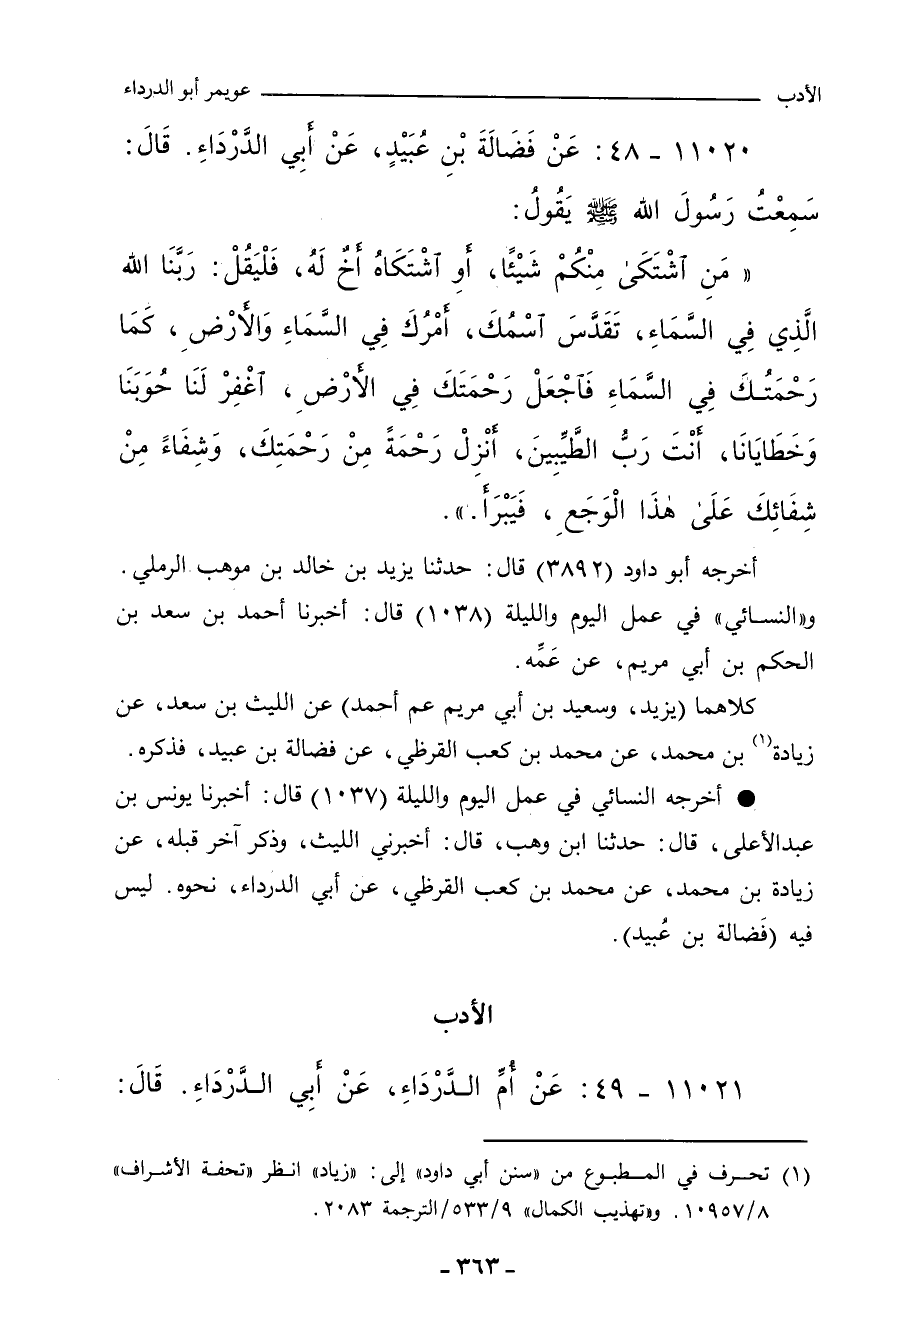 الأدب ـــــــــــــــــ عويمر أبو الدرداء
١١٠٢٠ ـ ٤٨ : عَنْ فَضَالَةَ بْنِ عُبَيْدٍ، عَنْ أَبِي الدَّرْدَاءِ. قَالَ:
سَمِعْتُ رَسُولَ الله ﷺ يَقُولُ:
« مَنِ ٱشْتَكَىٰ مِنْكُمْ شَيْئًا، أَوِ ٱشْتَكَاهُ أَخٌ لَهُ، فَلْيَقُلْ: رَبَّنَا الله
الَّذِي فِي السَّمَاءِ، تَقَدَّسَ ٱسْمُكَ، أَمْرُكَ فِي السَّمَاءِ وَالْأَرْضِ، كَمَا
رَحْمَتُـكَ فِي السَّمَاءِ فَٱجْعَلْ رَحْمَتَكَ فِي الأَرْضِ، ٱغْفِرْ لَنَا حُوبَنَا
وَخَطَايَانَا، أَنْتَ رَبُّ الطَّيِّبِينَ، أَنْزِلْ رَحْمَةً مِنْ رَحْمَتِكَ، وَشِفَاءً مِنْ
شِفَائِكَ عَلَىٰ هٰذَا الْوَجَعِ، فَيَبْرَأَ.».
أخرجه أبو داود (٣٨٩٢) قال: حدثنا يزيد بن خالد بن موهب الرملي.
و«النسـائي» في عمل اليوم والليلة (١٠٣٨) قال: أخبرنا أحمد بن سعد بن
الحكم بن أبي مريم، عن عَمِّه.
كلاهما (يزيد، وسعيد بن أبي مريم عم أحمد) عن الليث بن سعد، عن
زيادة(١) بن محمد، عن محمد بن كعب القرظي، عن فضالة بن عبيد، فذكره.
● أخرجه النسائي في عمل اليوم والليلة (١٠٣٧) قال: أخبرنا يونس بن
عبدالأعلى، قال: حدثنا ابن وهب، قال: أخبرني الليث، وذكر آخر قبله، عن
زيادة بن محمد، عن محمد بن كعب القرظي، عن أبي الدرداء، نحوه. ليس
فيه (فَضالة بن عُبيد).
الأدب
١١٠٢١ ـ ٤٩ : عَنْ أُمِّ الـدَّرْدَاءِ، عَنْ أَبِي الـدَّرْدَاءِ. قَالَ:
(١) تحـرف في المـطبـوع من «سنن أبي داود» إلى: «زياد» انـظر «تحفـة الأشـراف»
١٠٩٥٧/٨. و«تهذيب الكمال» ٥٣٣/٩/الترجمة ٢٠٨٣.
ـ ٣٦٣ ـ